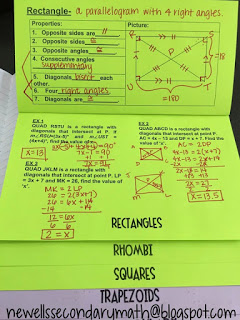 Rectangle- a parallelogram with 4 right angles.
Properties:
Picture:
1. Opposite sides are //
2. Opposite sides ≅
3. Opposite angles ≅
4. Consecutive angles
supplementary
5. Diagonals bisect each
other.
6. Four right angles
7. Diagonals are ≅
=180
EX 1
QUAD RSTU is a rectangle with
diagonals that intersect at point P. If
X=13
7x-1=90
EX 2
QUAD JKLM is a rectangle with
diagonals that intersect at point P. LP
= 3x + 7 and MK = 26, find the value
of 'x'.
MK = 2LP
26 = 2(3x+7)
26 = 6x + 14
-14 -14
12 = 6x
6 6
2 = x
EX 3
QUAD ABCD is a rectangle with
diagonals that intersect at point P.
AC = 4x - 13 and DP = x + 7. Find
the value of 'x'.
AC = 2DP
4x-13 = 2(x+7)
4x-13 = 2x+14
-2x -2x
2x-13 = 14
+13 +13
2x = 27
X = 13.5
RECTANGLES
RHOMBI
SQUARES
TRAPEZOIDS
newellssecondarymath@blogspot.com